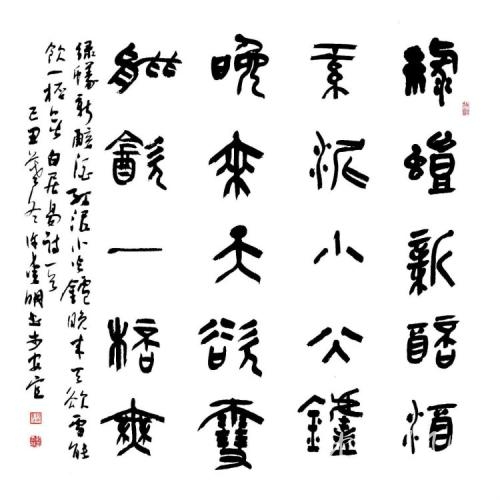 綠螘新醅酒
紅泥小火鑪
晚來天欲雪
能飲一桮無
綠螘新醅酒紅泥小火鑪晚來天欲雪能
飲一桮無 白居易詩一首
己丑 冬 明書 安宜